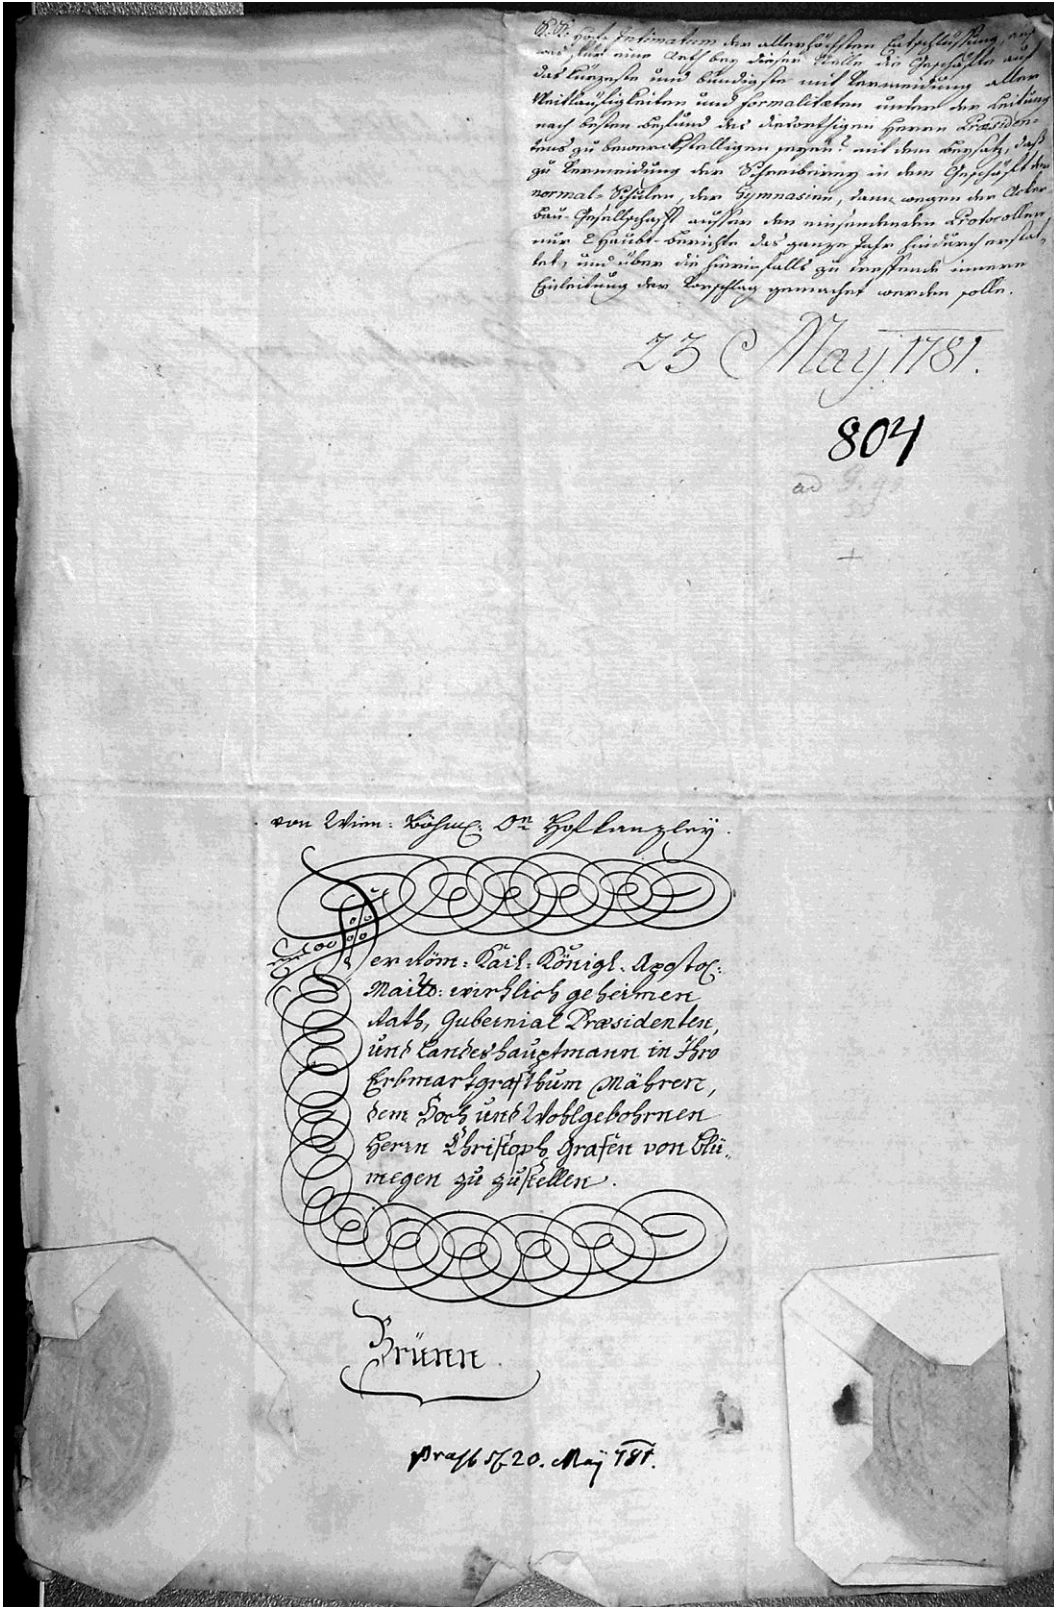 Intimatum der allerhöchsten Entschlüssung, auf
was für eine Arth bey dieser Stelle die Geschäfte auf
das kürzeste und bündigste mit Vermeidung aller
Weitläufigkeiten und Formalitæten unter der Leitung
nach besten Befund des dasorthigen Herrn Præsiden-
tens zu bewerckstelligen seyen? mit dem Beysatz, daß
zu Vermeidung der Schreiberey in dem Geschäft der
normal-Schulen, der Gymnasien, dann wegen der Acker-
bau-Gesellschafft ausser den einsendenden Protocollen,
nur 2 Haubt-Berichte das ganze Jahr hindurch erstat-
tet, und über die hierinfalls zu treffende innere
Einleitung der Vorschlag gemachet werden solle.
23 May 1781.
804
ad
+
von Wien: Böhm: Ö Hofkanzley.
Der Röm: Kais: Königl: Apostol:
Maitt: wirklich geheimen
Rath, Gubernial Præsidenten,
und Landeshauptmann in Ihro
Erbmarkgrafthum Mähren,
dem Hoch und Wohlgebohrnen
Herrn Christoph Grafen von Blü-
megen zu zustellen.
Brünn
20. May 781.